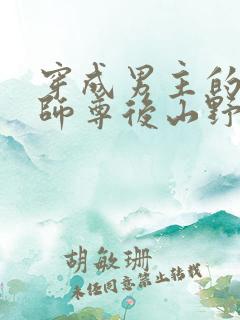 穿成男主的
師尊後山野
胡敏珊
未经同意禁止转载